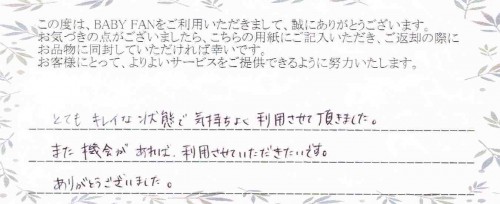 この度は、BABY FANをご利用いただきまして、誠にありがとうございます。
お気づきの点がございましたら、こちらの用紙にご記入いただき、ご返却の際に
お品物に同封していただければ幸いです。
お客様にとって、よりよいサービスをご提供できるように努力いたします。
とても キレイな 状態で 気持ちよく 利用させて 頂きました。
また 機会が あれば、利用させていただきたいです。
ありがとうございました。